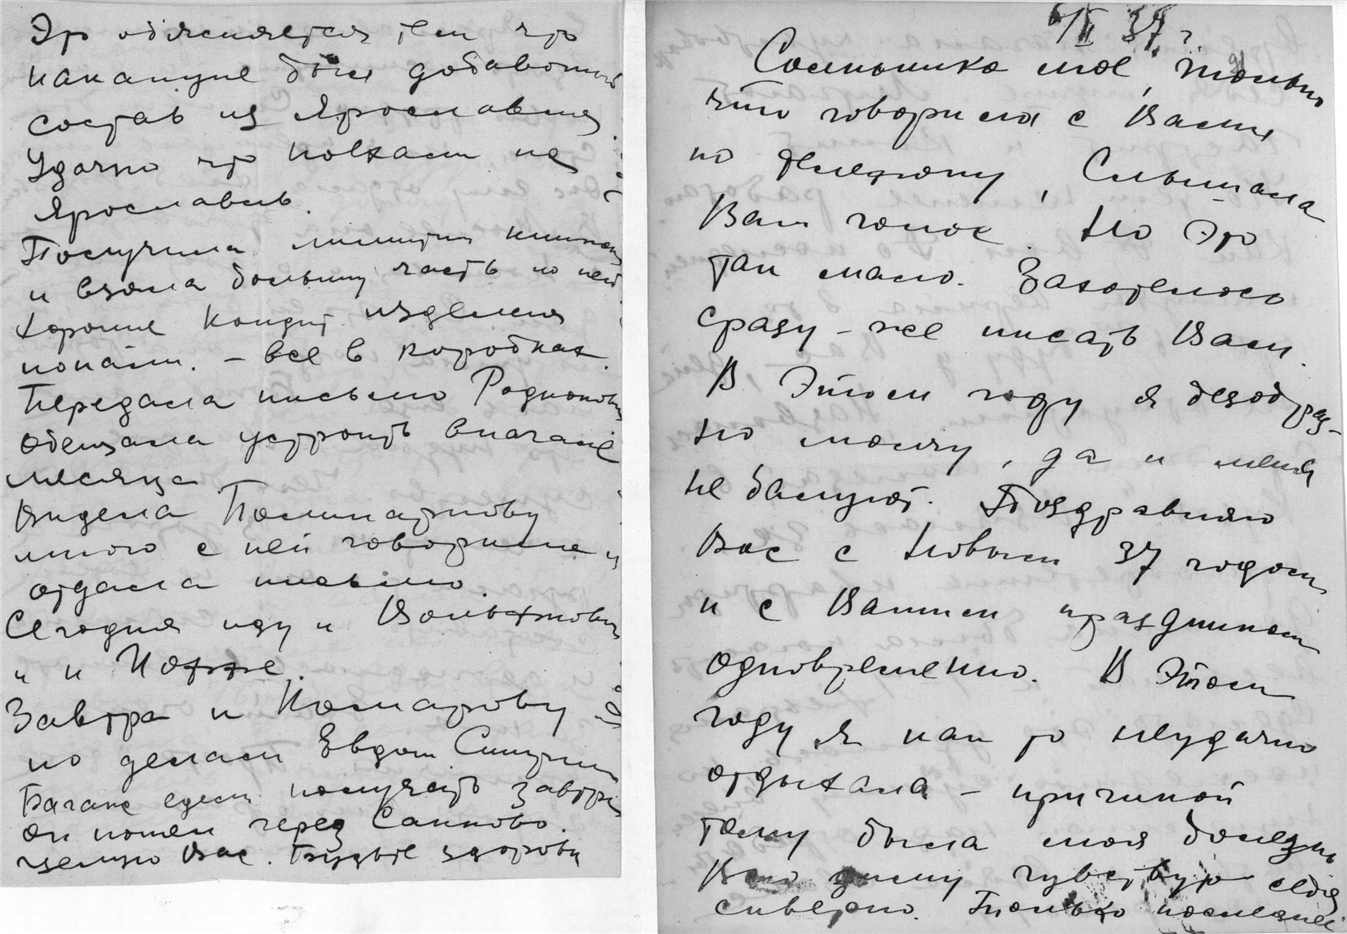 Это объясняется тем что
накануне был добавочный
состав из Ярославля
Удачно что поехали на
Ярославль.
Получила лимитн книжку
и взяла большую часть по ней
хорошие кондит. изделия
попали. – все в коробках
Передала письмо
обещала устроить вначале
месяца
Видела
много с ней говорила и
отдала письмо.
Сегодня иду к
и к Иоффе.
Завтра к Комарову
по делам
Багаж едем получать завтра
он пошел через
целую Вас. Будьте здоровы
6/I 37 г
Солнышко мое, только
что говорила с Вами
по телефону, Слышала
Ваш голос. Но Это
так мало. Захотелось
сразу – же писать Вам.
В Этом году я безобраз-
но молчу, да и меня
не балуют. Поздравляю
Вас с Новым 37 годом
и с Вашим праздником
одновременно. В Этом
году я как то неудачно
отдыхала – причиной
тому была моя болезнь
Всю зиму чувствую себя
скверно. Только последние